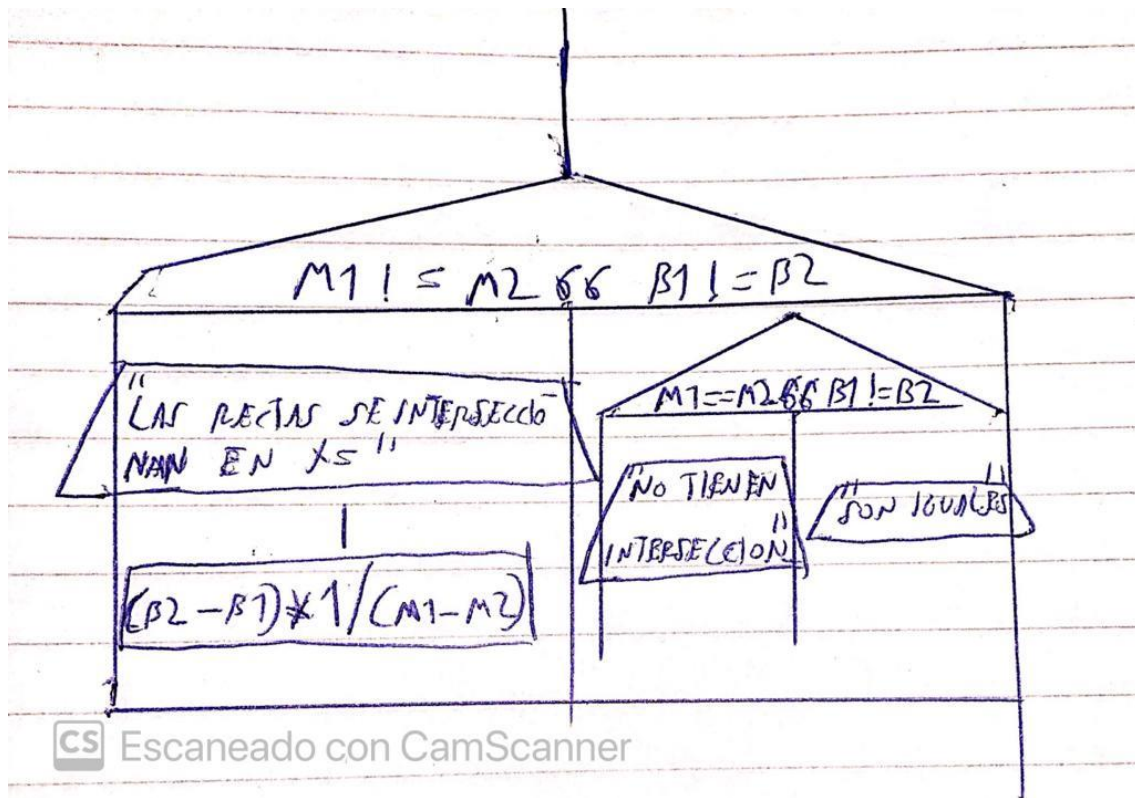 M1 != M2 && B1 != B2
"LAS RECTAS SE INTERSECCIO
NAN EN X="
(B2-B1)*1/(M1-M2)
M1==M2 && B1!=B2
"NO TIENEN
INTERSECCION"
"SON IGUALES"
CS Escaneado con CamScanner